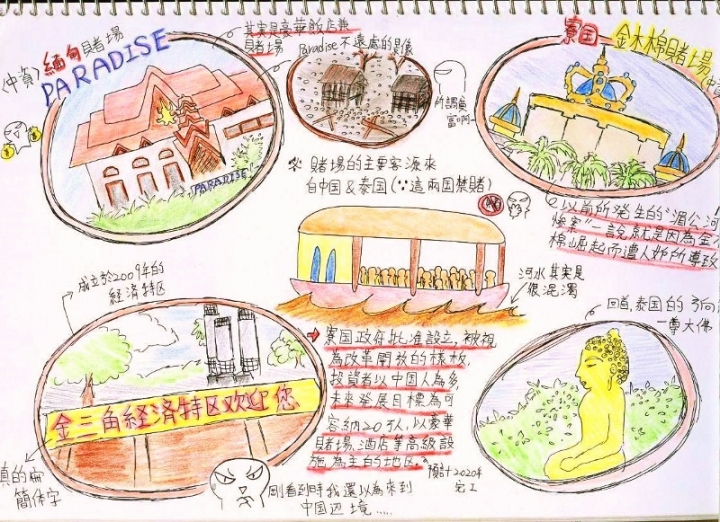 〈中資〉
緬甸賭場
PARADISE
PARADISE
其實是豪華飯店兼
賭場
Paradise不遠處的景像
所謂貧
富啊…
寮国—金木棉賭場
※ 賭場的主要客源來
自中国&泰国(∵這兩国禁賭)
以前所発生的"湄公河
慘案"一說就是因為金木
棉崛起而遭人妒所導致
河水其実是
很混濁
成立於2009年的
経済特区
金三角経済特区欢迎您
真的扁
簡体字
剛看到時我還以為來到
中国辺境.....
寮国政府批准設立,被視
為改革開放的樣板,
投資者以中国人為多,
未來發展目標為可
容納20万人,以豪華
賭場、酒店等高級設
施為主的地区。
預計2020年
完工
回首,泰国的
一尊大佛